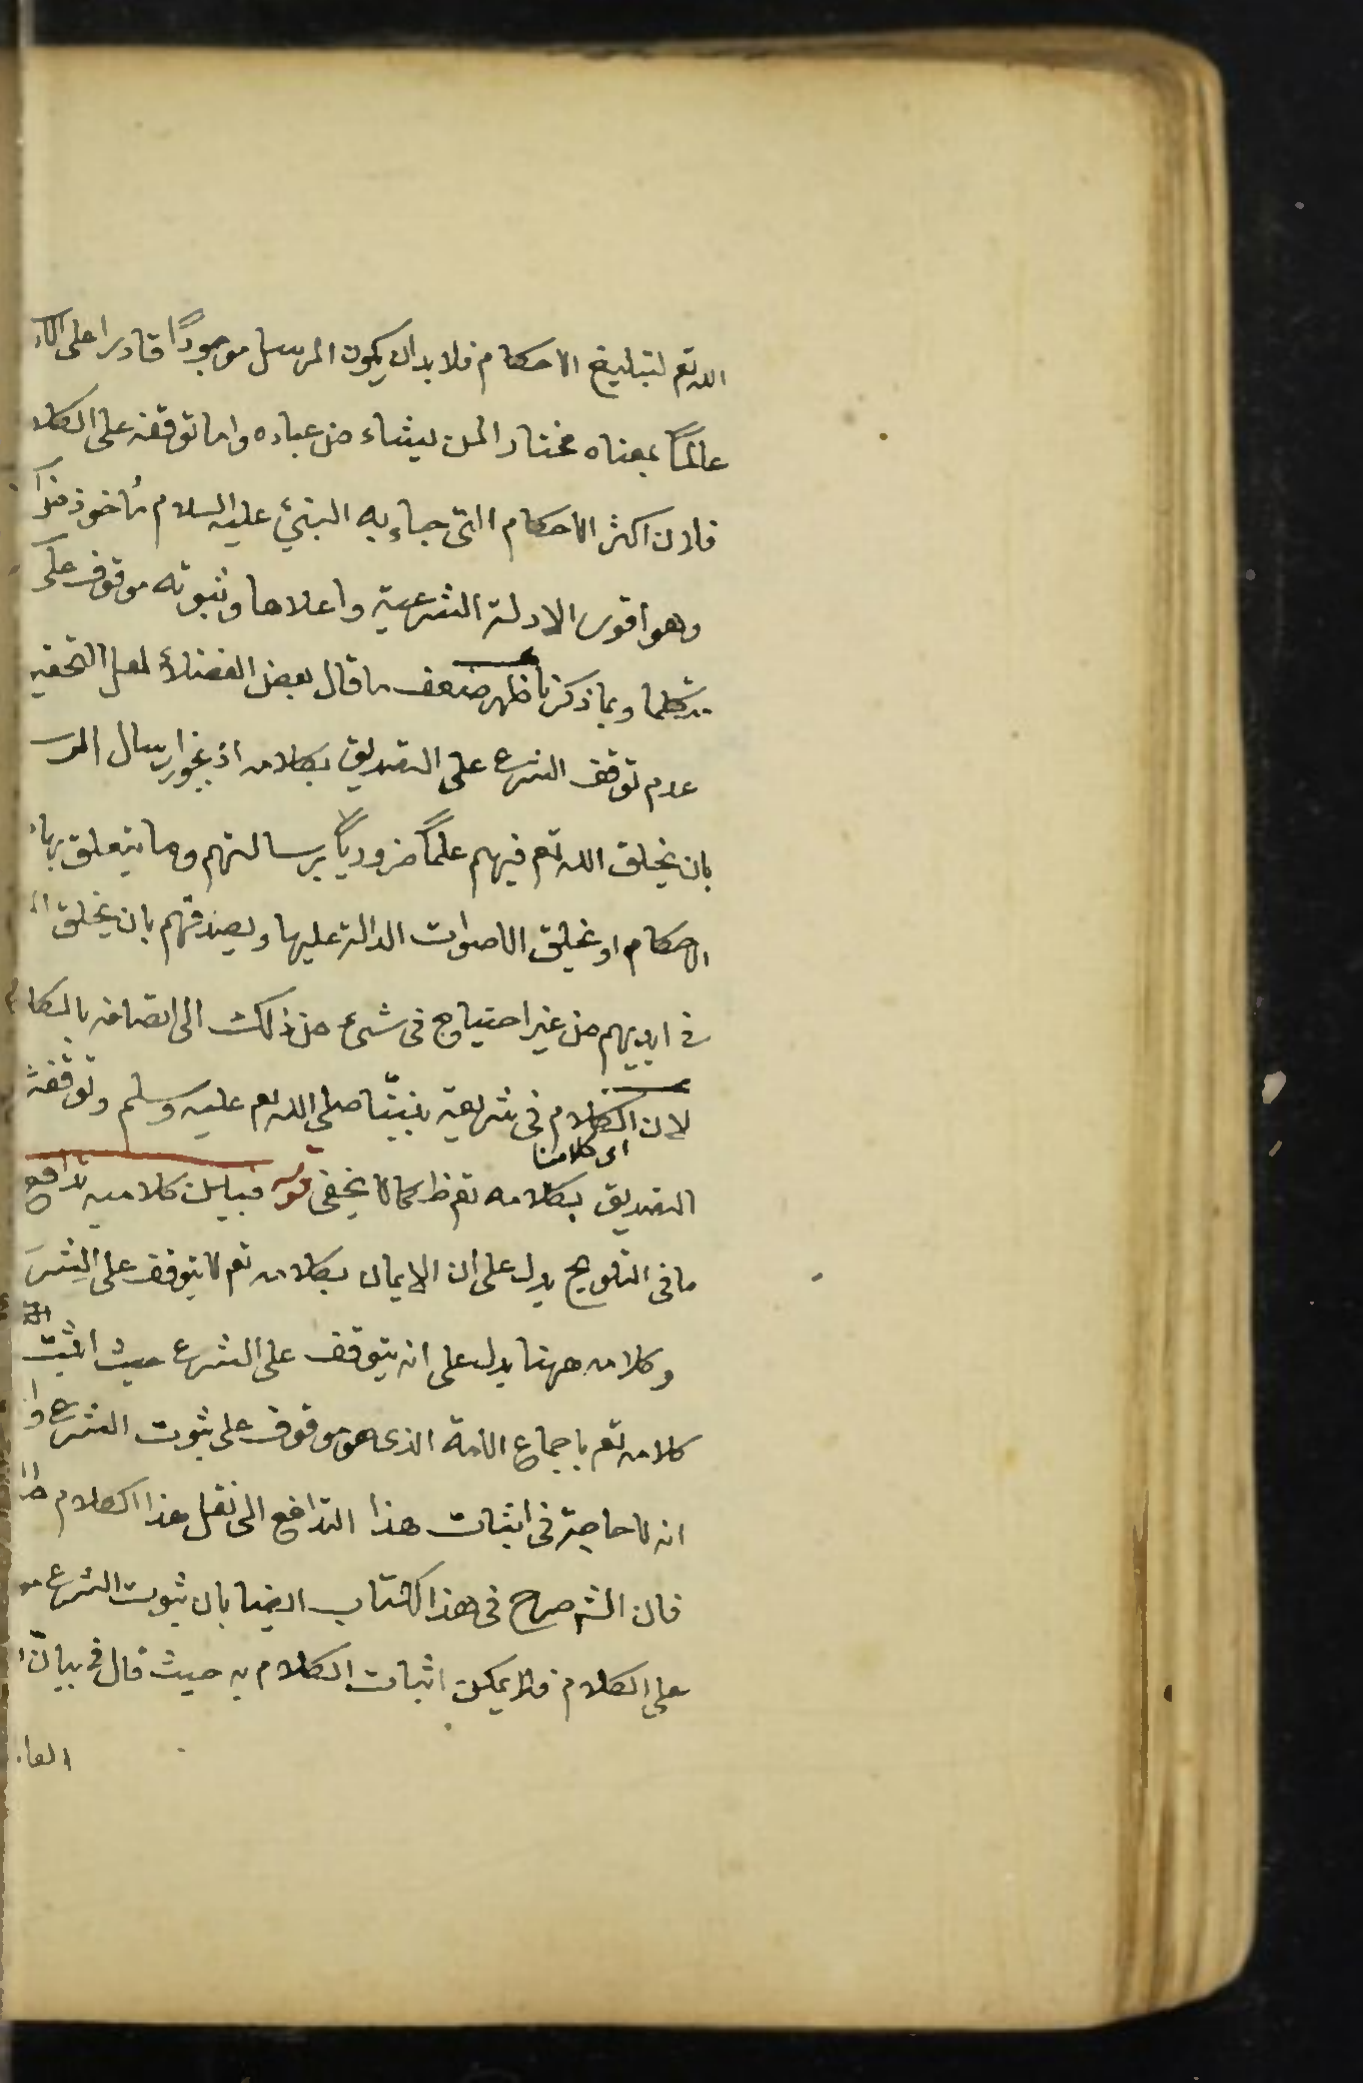 الله تع لتبليغ الاحكام فلا بد ان يكون المرسل موجودًا قادرا على
عالمًا بمعناه مختارا لمن يشاء من عباده واما توقفه على الكلا
فلان اكثر الاحكام التى جاء به النبىّ عليه السلام مأخوذ
وهو اقوى الادلة الشرعية واعلاها وثبوته موقوف على
متكلما وبما ذكرنا ظهر ضعف ما قال بعض الفضلاء لعل التحقيق
عدم توقف الشرع على التصديق بكلامه اذ يجوز ارسال الرسـ
بان يخلق الله تع فيهم علمًا ضروريًا برسالتهم وما يتعلق بها
الاحكام او يخلق الاصوات الدالة عليها ويصدقهم بان يخلق
فى ايديهم من غير احتياج فى شىء من ذلك الى اتصافه بالكلام
لان الكلام فى شريعة نبيّنا صلى الله تع عليه وسلم وتوقفه
اى كلامنا
التصديق بكلامه تع ظ كما لا يخفى قوله فبين كلاميه تدافع
ما فى التلويح يدل على ان الايمان بكلامه تع لا يتوقف على الشر
وكلامه ههنا يدل على انه يتوقف على الشرع حيث اثبت
كلامه تع باجماع الامة الذى هو موقوف على ثبوت الشرع وا
انه لا حاجة فى اثبات هذا التدافع الى نقل هذا الكلام
فان الش صرح فى هذا الكتاب ايضا بان ثبوت الشرع مو
على الكلام فلا يمكن اثبات الكلام به حيث قال فى بيان